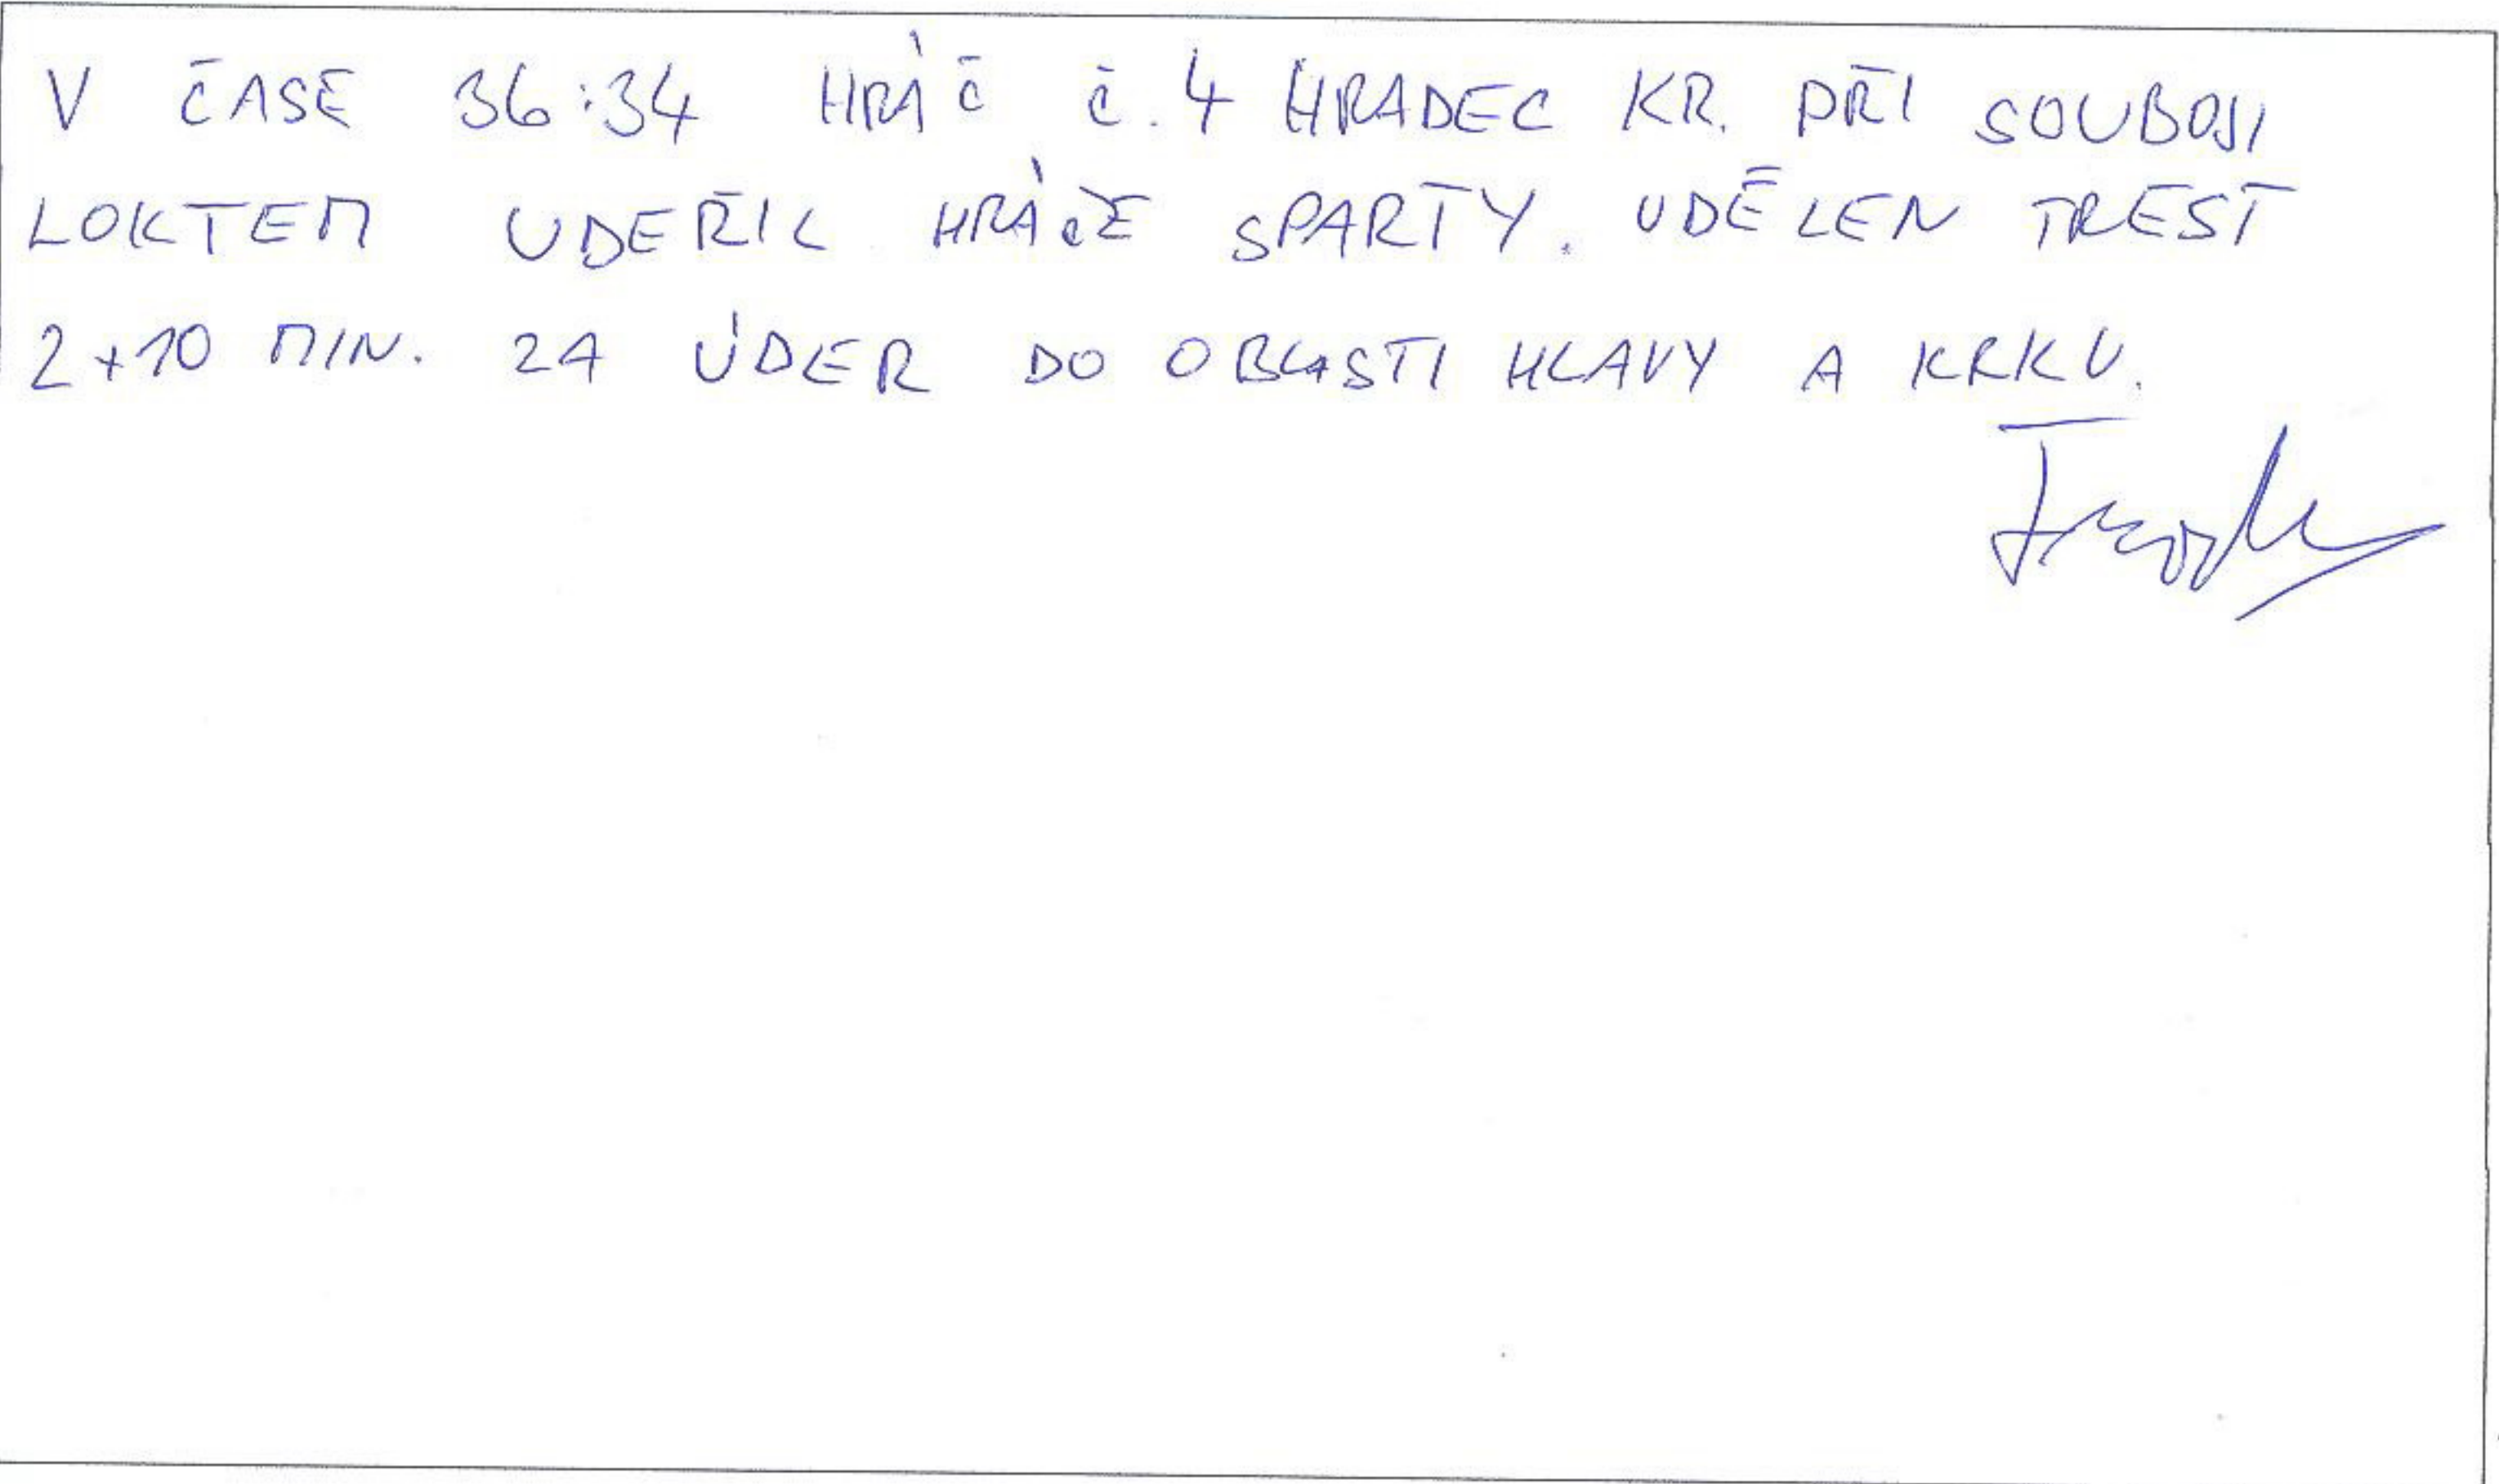 V ČASE 36:34 HRÁČ Č.4 HRADEC KR. PŘI SOUBOJI
LOKTEM UDEŘIL HRÁČE SPARTY. UDĚLEN TREST
2+10 MIN. ZA ÚDER DO OBLASTI HLAVY A KRKU.